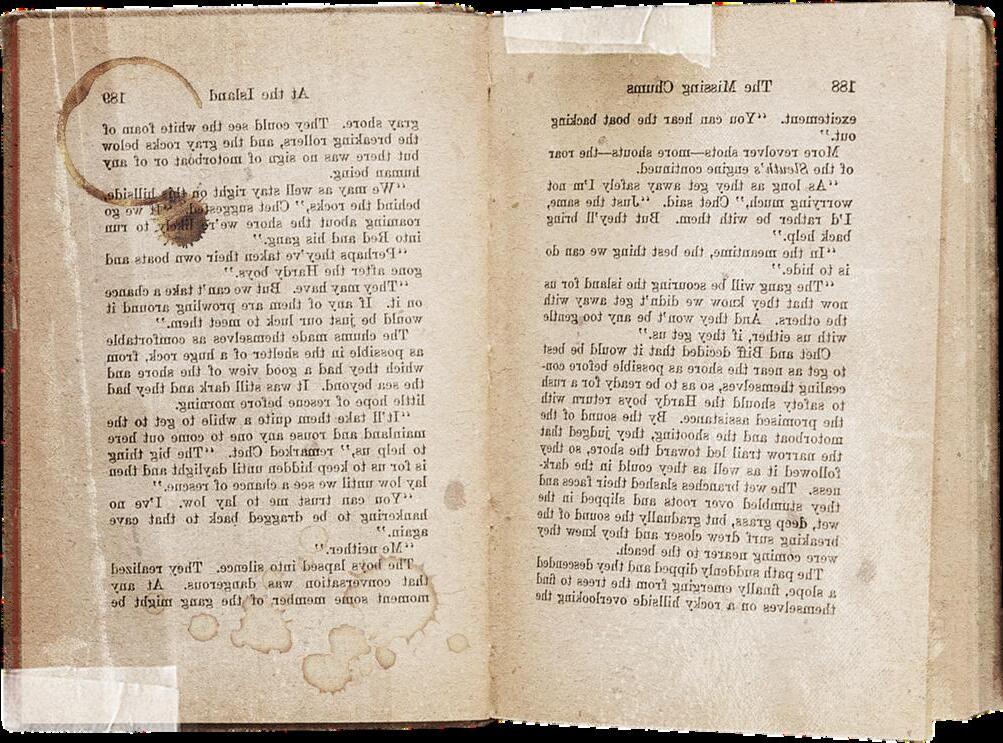 188 The Missing Chums
excitement. "You can hear the boat backing
out."
More revolver shots—more shouts—the roar
of the Sleuth's engine continued.
"As long as they get away safely I'm not
worrying much," Chet said. "Just the same,
I'd rather be with them. But they'll bring
back help."
"In the meantime, the best thing we can do
is to hide."
"The gang will be scouring the island for us
now that they know we didn't get away with
the others. And they won't be any too gentle
with us either, if they get us."
Chet and Biff decided that it would be best
to get as near the shore as possible before con-
cealing themselves, so as to be ready for a rush
to safety should the Hardy boys return with
the promised assistance. By the sound of the
motorboat and the shooting, they judged that
the narrow trail led toward the shore, so they
followed it as well as they could in the dark-
ness. The wet branches slashed their faces and
they stumbled over roots and slipped in the
wet, deep grass, but gradually the sound of the
breaking surf drew closer and they knew they
were coming nearer to the beach.
The path suddenly dipped and they descended
a slope, finally emerging from the trees to find
themselves on a rocky hillside overlooking the
At the Island 189
gray shore. They could see the white foam of
the breaking rollers, and the gray rocks below
but there was no sign of motorboat or of any
human being.
"We may as well stay right on this hillside,
behind the rocks," Chet suggested. "If we go
roaming about the shore we're likely to run
into Red and his gang."
"Perhaps they've taken their own boats and
gone after the Hardy boys."
"They may have. But we can't take a chance
on it. If any of them are prowling around it
would be just our luck to meet them."
The chums made themselves as comfortable
as possible in the shelter of a huge rock, from
which they had a good view of the shore and
the sea beyond. It was still dark and they had
little hope of rescue before morning.
"It'll take them quite a while to get to the
mainland and rouse any one to come out here
to help us," remarked Chet. "The big thing
is for us to keep hidden until daylight and then
lay low until we see a chance of rescue."
"You can trust me to lay low. I've no
hankering to be dragged back to that cave
again."
"Me neither."
The boys lapsed into silence. They realized
that conversation was dangerous. At any
moment some member of the gang might be